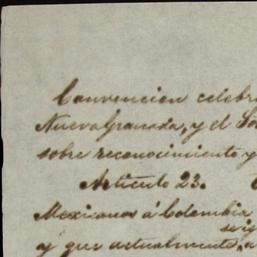 Convencion celebr
Nueva Granada, y el So
sobre reconocimiento y
Articulo 23.
Mexicanos á Colombia
y que actualmente, a